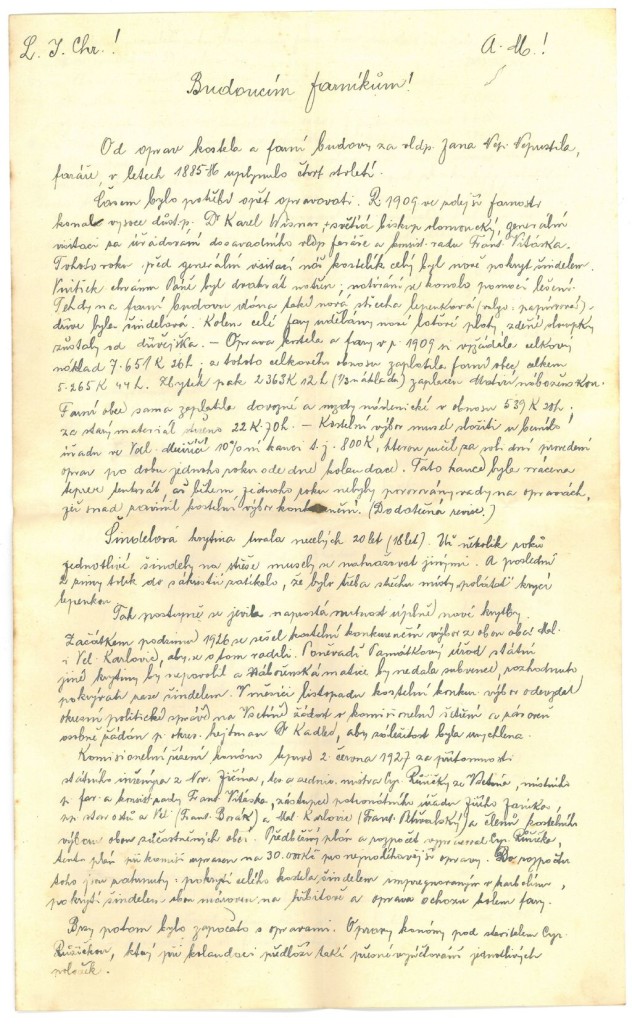 L. J. Chr.! A. M.!
Budoucím farníkům!
Od oprav kostela a farní budovy za vldp. Jana Nep. Nepustila,
faráře, v letech 1885-86 uplynulo čtvrt století.
Časem bylo potřebí opět opravovati. R 1909 ve zdejší farnosti
konal vysoce důst. p. Dr Karel Wisnar, světící biskup olomoucký, generální
visitaci za úřadování dosavadního vldp faráře a konsist. radu Frant. Vitáska.
Tohoto roku před generální visitací náš kostelík celý byl nově pokryt šindelem.
Vnitřek chrámu Páně byl dvakrát natřen, natírání se konalo pomocí lešení.
Tehdy na farní budovu dána také nová střecha lepenková (vulgo: papírová),
dříve byla šindelová. Kolem celé fary udělány nové laťové ploty, zděné sloupky
zůstaly od dřívějška. – Oprava kostela a fary v r. 1909 si vyžádala celkový
náklad 7.651 K 26 h; z tohoto celkového obnosu zaplatila farní obec celkem
5.265 K 44 h. Zbytek pak 2363 K 12 h (1/3 nákladu) zaplacen Matici nábožens. kon.
Farní obec sama zaplatila dovozné a mzdy nádenické v obnosu 539 K
za starý materiál 22 K 70 h. – Kostelní výbor musel složiti u berního
úřadu ve Val. Meziříčí 10%ní kauci t. j. 800 K, kterou ručil za solidní provedení
oprav po dobu jednoho roku ode dne kolaudace. Tato kauce byla vrácena
teprve tenkrát, až během jednoho roku nebyly pozorovány vady na opravách,
jež snad zavinil kostelní výbor (Dodatečná revise.)
Šindelová krytina trvala necelých 20 let (18 let). Už několik roků
jednotlivé šindely na střeše musely se nahrazovat jinými. A poslední
2 zimy tolik do sákristie zatékalo, že bylo třeba střechu místy „polátat“ krycí
lepenkou.
Tak postupně se jevila naprostá nutnost úplně nové krytby.
Začátkem podzimu 1926 se sešel kostelní konkurenční výbor z obou obcí Mal.
i Vel. Karlovic, aby se o tom radili. Poněvadž Památkový úřad státní
jiné krytiny by nepovolil a Náboženská matice by nedala subvence, rozhodnuto
pokrývati zase šindelem. V měsíci listopadu kostelní konkur. výbor odevzdal
okresní politické správě na Vsetíně žádost o komisionelní šetření a zároveň
osobně žádán p. okres. hejtman Dr Kádlec, aby záležitost byla urychlena.
Komisionelní řízení konáno teprve 2. června 1927 za přítomnosti
státního inženýra z Nov. Jičína, tes. a zednic. mistra Cyr. Růžičky ze Vsetína, místního
p. far. a konsist. rady Frant. Vitáska, zástupce patronátního úřadu Jiřího Janíka,
pp. starostů z Vel. (Frant. Borák) a Mal. Karlovic (Frant. ) a členů kostelního
výboru obou zúčastněných obcí. Předběžný plán a rozpočet vypracoval Cyr. Růžička,
tento plán při komisi upraven na 30.000 Kč po nejnutnější opravy. Do rozpočtu
toho jsou zahrnuty: pokrytí celého kostela šindelem impregnovaným v karbolínu,
pokrytí šindelem obou márovon na hřbitově a oprava ochozu kolem fary.
Brzy potom bylo započato s opravami. Opravy konány pod stavitelem Cyr.
Růžičkou, který při kolaudaci předloží také přesné vyúčtování jednotlivých
položek.